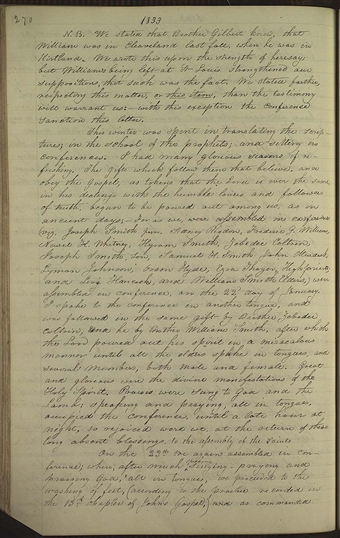 270
1833
N. B. We stated that Brother Gilbert knew, that
William was in Cleaveland last fall, when he was in
Kirtland. We wrote this upon the strength of heresay;
but William being left at St. Louis strengthened our
suppositions, that such was the fact. We stated farther,
respecting this matter, or this item, than the testimony
will warrant us:— with this exception the conference
sanction this letter.
This winter was spent in translating the scrip-
tures; in the school of the prophets; and sitting in
conferences. I had many glorious seasons of re-
freshing. The gift which follow them that believe, and
obey the gospel, as tokens that the Lord is ever the same
in his dealings with the humble lovers and followers
of truth, began to be poured out among us, as in
ancient days;— for as we, were assembled in conference
viz, Joseph Smith jun, Sidney Rigdon, Frederic G. Williams,
Newel K. Whitney, Hyrum Smith, Zebedee Coltrin,
Joseph Smith sen, Samuel H. Smith, John Murdock,
Lyman Johnson, Orson Hyde, Ezra Thayer, High priests;
and Levi Hancock, and William Smith Elders, were
assembled in conference, on the 22nd day of January,
I spake to the conference in another tongue, and
was followed in the same gift by Brother Zebedee
Coltrin, and he by Brother William Smith, after which
the Lord poured out his spirit in a miraculous
manner until all the elders spake in tongues, and
several members, both male and female. Great
and glorious were the divine manifestations of the
Holy Spirit, Praises were sung to God and the
Lamb; speaking and praying, all in tongues,
occupied the conference until a late hour at
night, so rejoiced were we, at the return of these
long absent blessings. to the assembly of the saints
On the 23rd we again assembled in con-
ference; when, after much speaking, singing, praying and
praising God, all in tongues, we proceeded to the
washing of feet, (according to the practice recorded in
the 13th chapter of Johns Gospel,) and as commanded